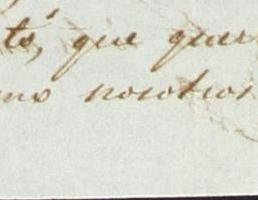 tó, que quer
mo nosotros